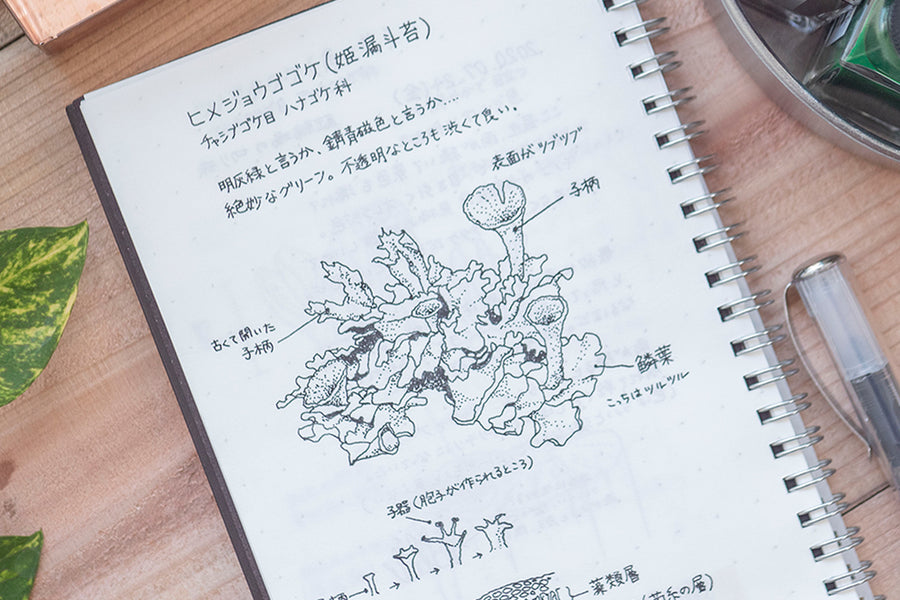 ヒメジョウゴゴケ(姫漏斗苔)
チャシブゴケ目 ハナゴケ科
明灰緑と言うか、錆青磁色と言うか....
絶妙なグリーン。不透明なところも渋くて良い。
表面がツブツブ
子柄
古くて開いた
子柄
鱗葉
こっちはツルツル
子器(胞子が作られるところ)
藻類層
(菌糸の層)